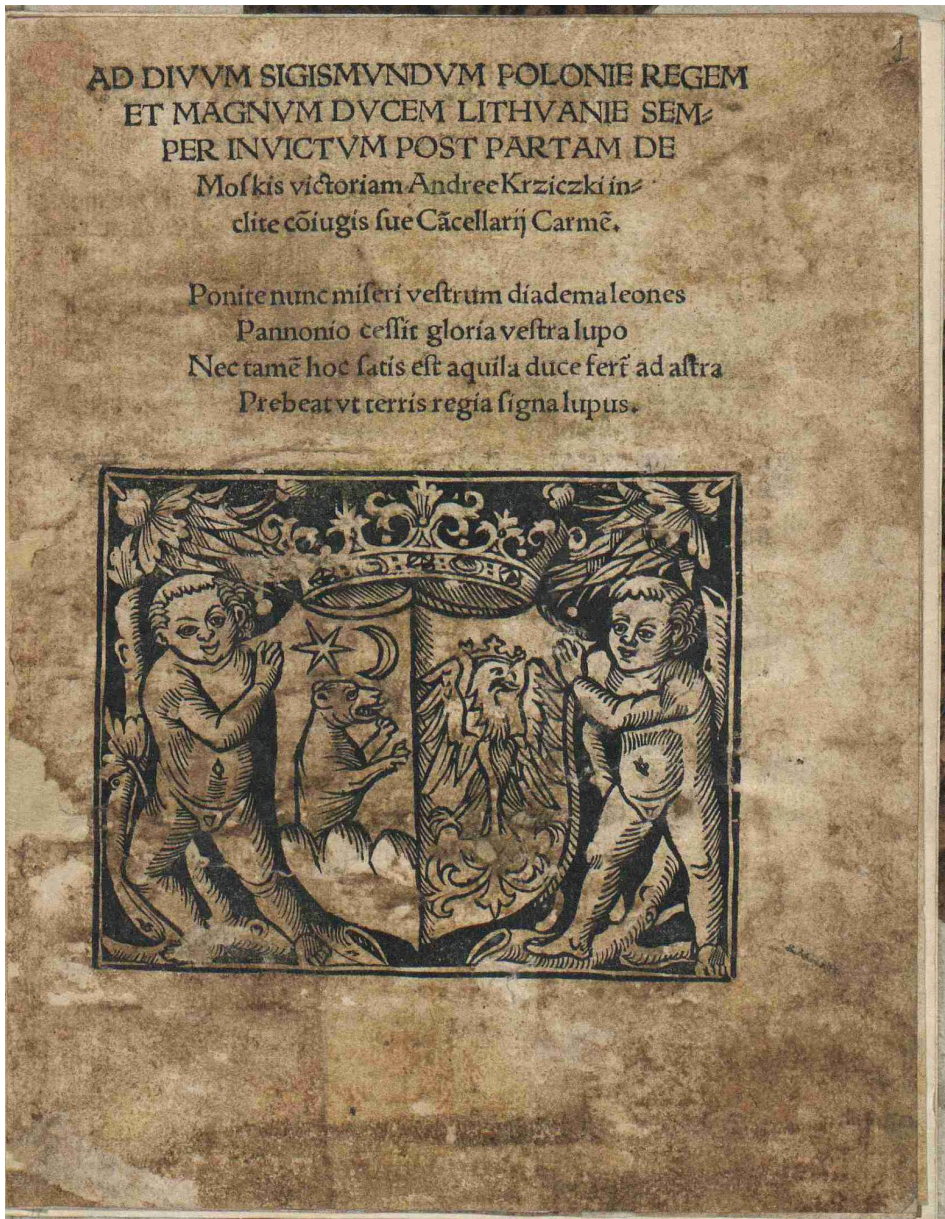 1
AD DIVVM SIGISMVNDVM POLONIE REGEM
ET MAGNVM DVCEM LITHVANIE SEM⸗
PER INVICTVM POST PARTAM DE
Moſkis victoriam Andree Krziczki in⸗
clite cõiugis ſue Cãcellarij Carmẽ.
Ponite nunc miſeri veſtrum diadema leones
Pannonio ceſſit gloria veſtra lupo
Nec tamẽ hoc ſatis eſt aquila duce fert̃ ad aſtra
Prebeat vt terris regia ſigna lupus.